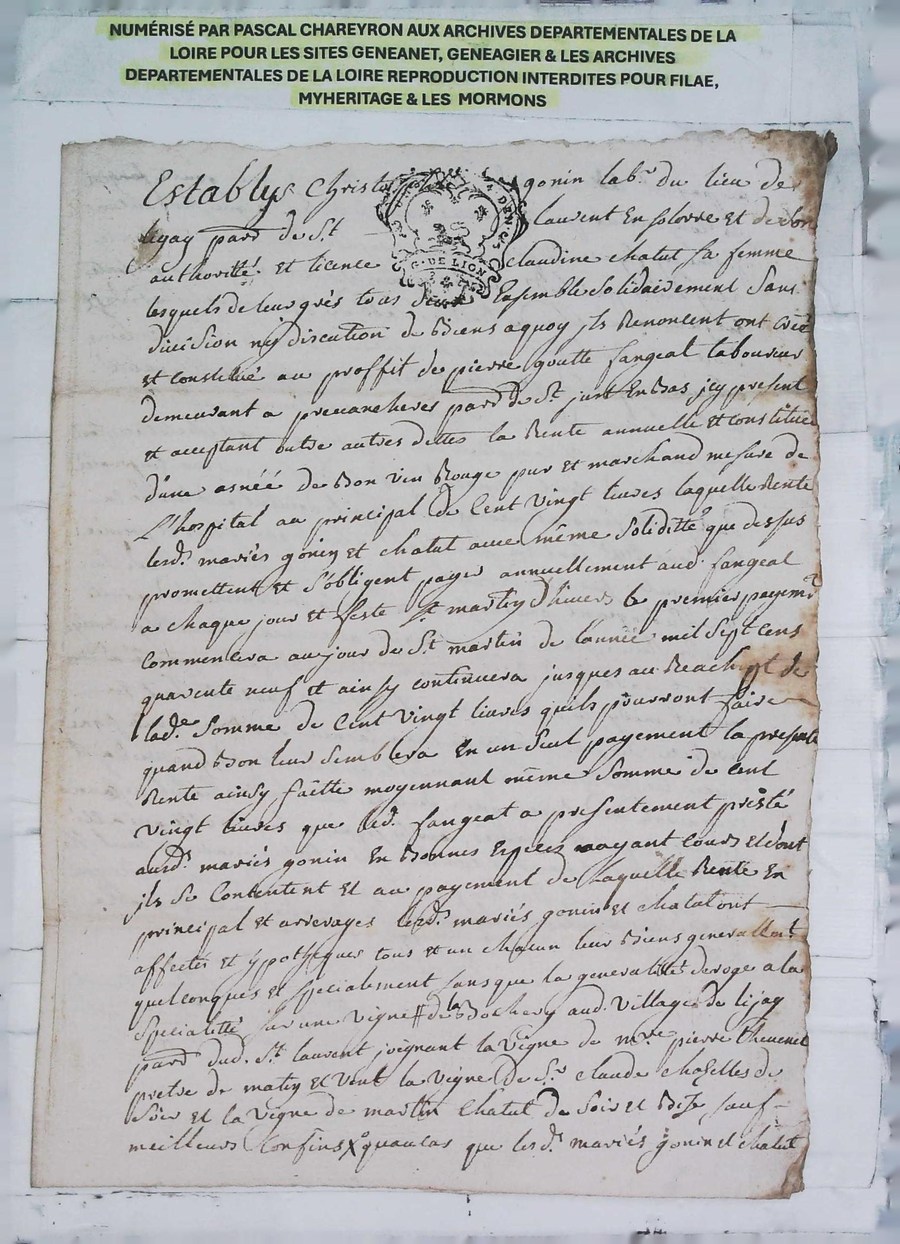 NUMÉRISÉ PAR PASCAL CHAREYRON AUX ARCHIVES DEPARTEMENTALES DE LA
LOIRE POUR LES SITES GENEANET, GENEAGIER & LES ARCHIVES
DEPARTEMENTALES DE LA LOIRE REPRODUCTION INTERDITES POUR FILAE,
MYHERITAGE & LES MORMONS
Establys Christo gonin labr. du lieu de
lijay parr de St. laurent En solorre et de son
authoritté et licence claudine chatut sa femme
G. DE LION
lesquels de leur grés tous Ensemble solidairement sans
division ny discution de Biens aquoy ils Renoncent ont créé
et constitué au proffit de pierre goutte fangeat laboureur
demeurant a parr de St just En Bas icy present
et acceptant outre autres dettes la Rente annuelle et constituée
d'une asnée de Bon vin Rouge pur et marchand mesure de
L'hospital au principal de Cent vingt livres laquelle Rente
lesd. mariés gonin et chatut avec même soliditté que dessus
promettent et s'obligent payer annuellement aud. fangeat
a chaque jour et feste St martin d'hivers le premier payemt
commencera au jour de St. martin de l'année mil sept cens
quarente neuf et ainsy continuera jusques au Reachapt de
lade. somme de Cent vingt livres quils pourront faire
quand Bon leur semblera En un seul payement la presente
Rente ainsy faitte moyennant même somme de cent
vingt livres que led. fangeat a presentement presté
ausd. mariés gonin En Bonnes Espèces ayant cours et dont
ils se Contentent et au payement de laquelle Rente En
principal et arrerages lesd. mariés gonin et chatut ont
affectés et ypothequés tous et un chacun leur Biens generallemt
quelconques et specialement sans que la generalitté deroge a la
specialitté sur une vigne # de la aud. village de lijay
parr dud. St. laurent joignant la vigne de mre pierre thevenet
pretre de matin et vent la vigne de Sr. claude chazelles de
soir et la vigne de martin Chatut de soir et Bise sauf
meilleurs Confins que lesd. mariés gonin et chatut